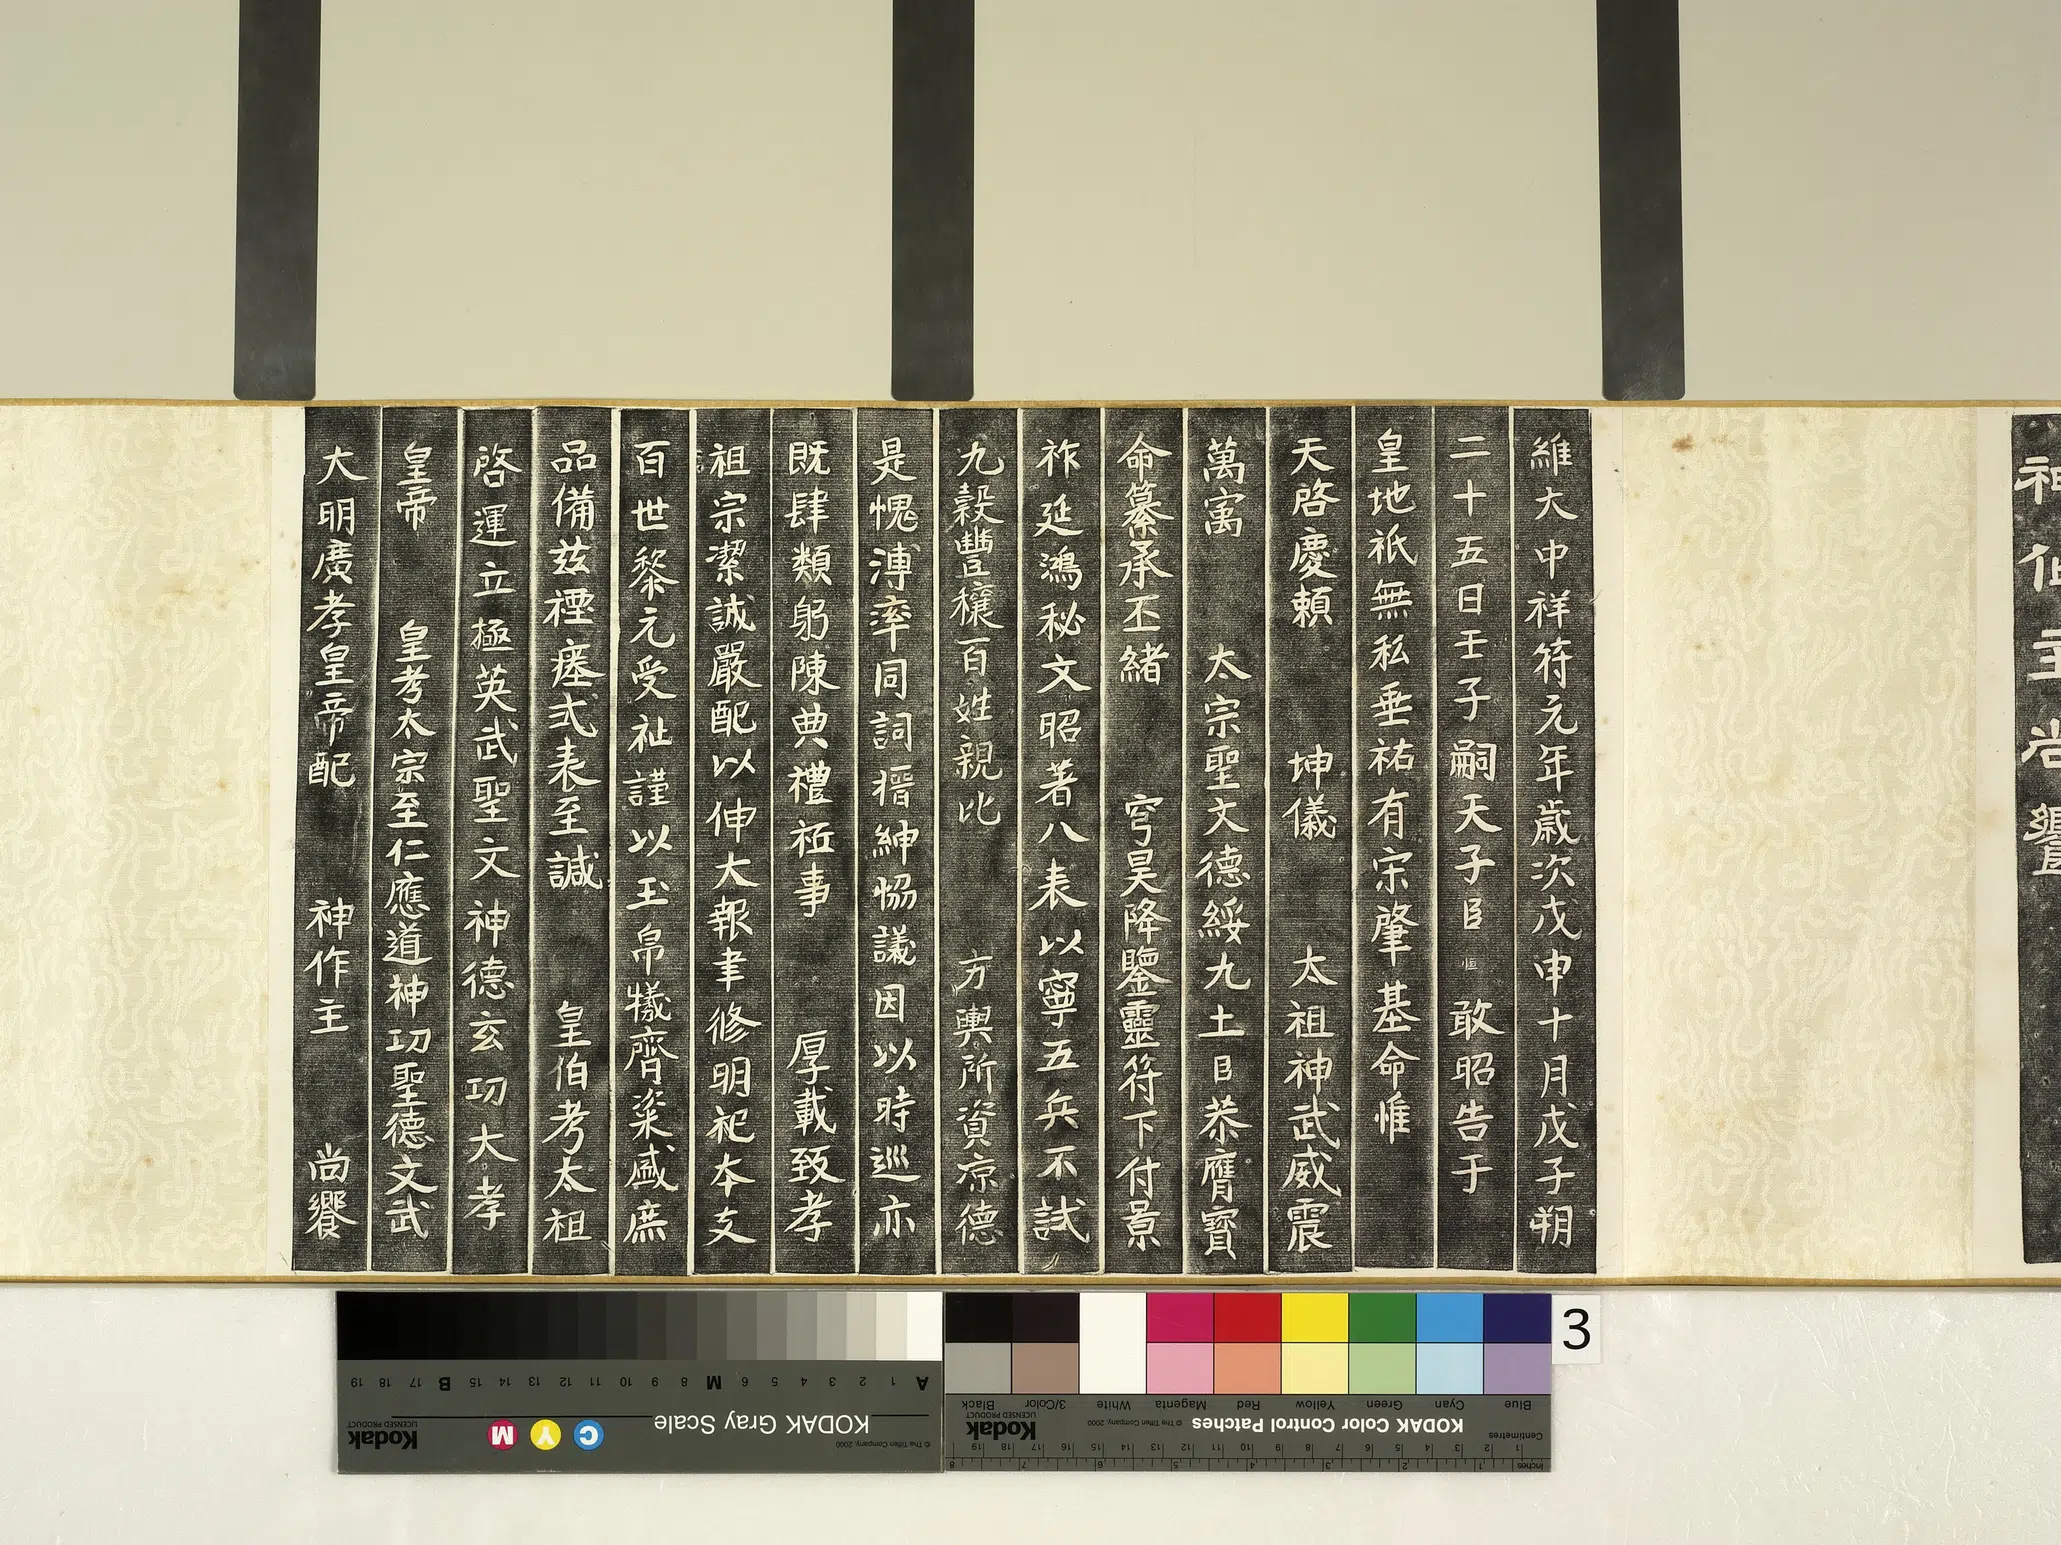 神作主尚饗
維大中祥符元年歲次戊申十月戊子朔
二十五日壬子嗣天子臣恒敢昭告于
皇地祇無私垂祐有宋肇基命惟
天啓慶賴 坤儀 太祖神武威震
萬㝢 太宗聖文德綏九土臣恭膺寶
命纂承丕緒 穹昊降鑒靈符下付景
祚延鴻秘文昭著八表以寧五兵不試
九穀豐穰百姓親比 方輿所資凉德
是愧溥率同詞搢紳恊議因以時巡亦
既肆類躬陳典禮祗事 厚載致孝
祖宗潔誠嚴配以伸大報聿修明祀本支
百世黎元受祉謹以玉帛犧齊粢盛庶
品備兹禋瘞式表至誠 皇伯考太祖
啓運立極英武聖文神德玄功大孝
皇帝 皇考太宗至仁應道神功聖德文武
大明廣孝皇帝配 神作主 尚饗
3
KODAK Color Control Patches
© The Tiffen Company, 2000
Kodak
LICENSED PRODUCT
Blue Cyan Green Yellow Red Magenta White 3/Color Black
Centimetres
Inches
1 2 3 4 5 6 7 8 9 10 11 12 13 14 15 16 17 18 19
1 2 3 4 5 6 7 8
KODAK Gray Scale
© The Tiffen Company, 2000
C Y M
Kodak
LICENSED PRODUCT
A 1 2 3 4 5 6 M 8 9 10 11 12 13 14 15 B 17 18 19